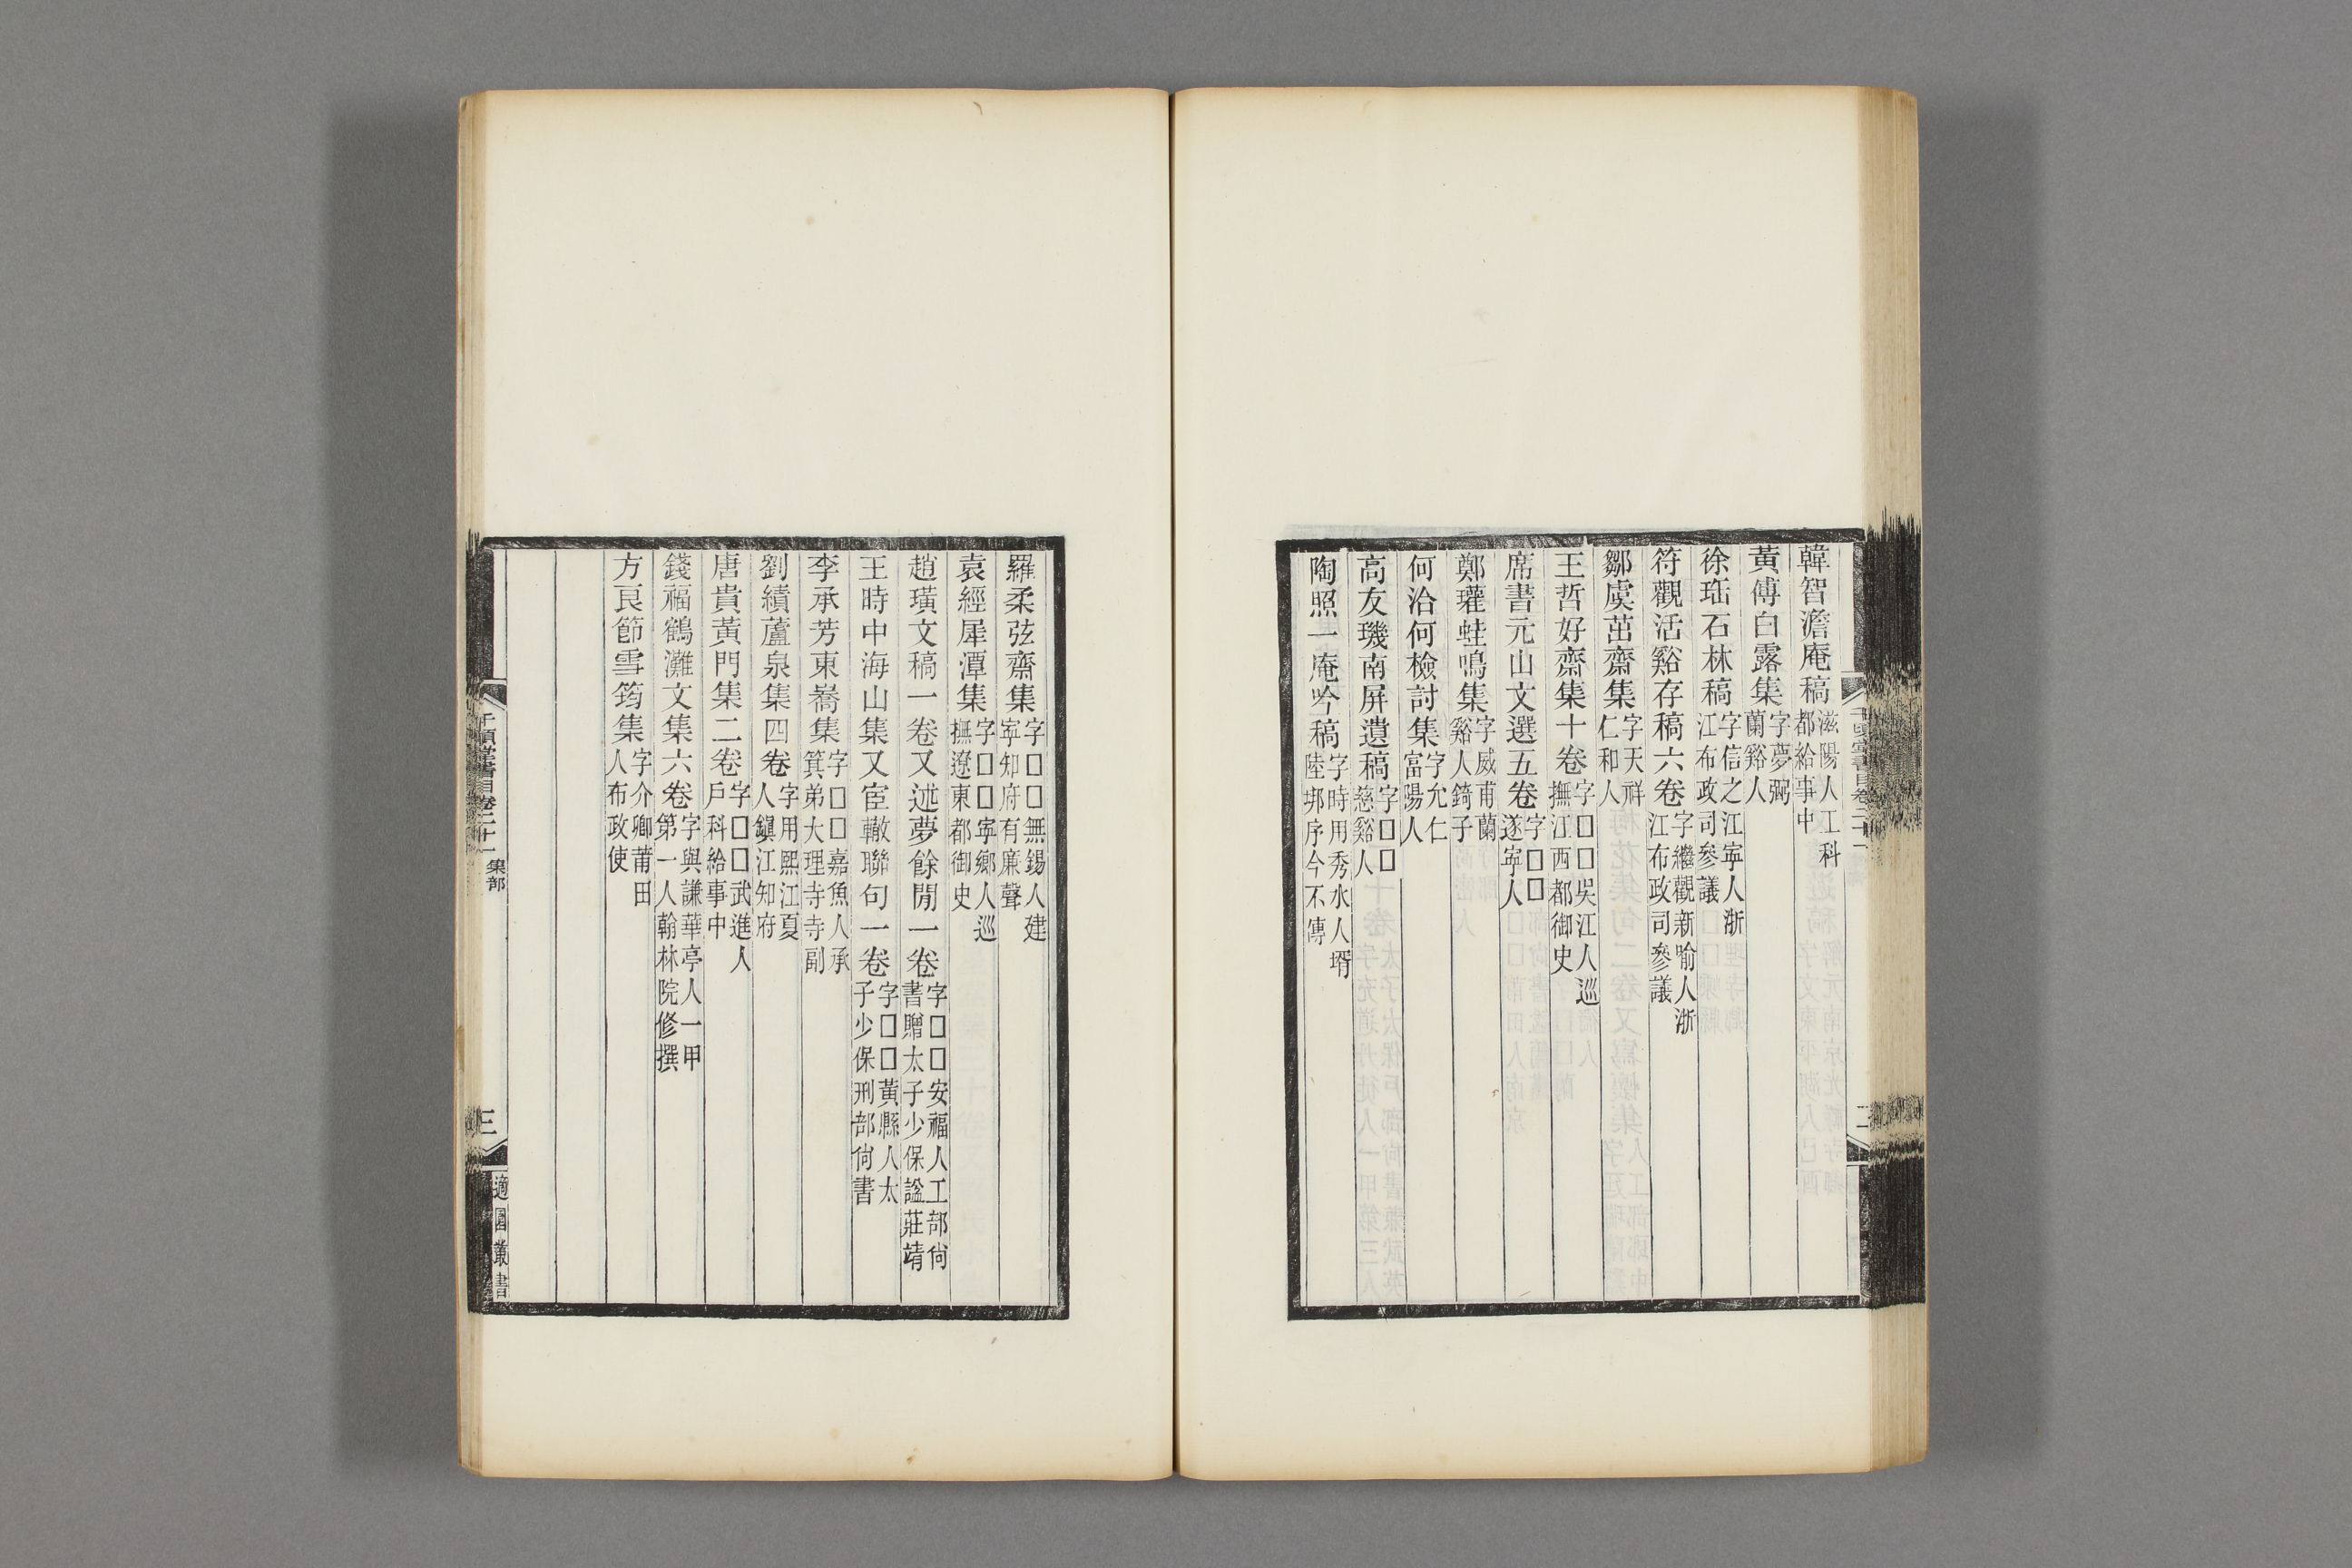 韓智澹庵稿滋陽人工科都給事中
黃傅白露集字夢弼蘭谿人
徐珤石林稿字信之江寧人浙江布政司參議
符觀活谿存稿六卷字繼觀新喻人浙江布政司參議
鄒虞茁齋集字天祥仁和人
王哲好齋集十卷字囗囗吳江人巡撫江西都御史
席書元山文選五卷字囗囗遂寧人
鄭瓘蛙鳴集字威甫蘭谿人錡子
何洽何檢討集字允仁富陽人
高友璣南屏遺稿字囗囗慈谿人
陶照一庵吟稿字時用秀水人壻陸邦序今不傳
千頃堂書目卷二十一
二
羅柔弦齋集字囗囗無錫人建寧知府有廉聲
袁經犀潭集字囗囗寧鄉人巡撫遼東都御史
趙璜文稿一卷又述夢餘閒一卷字囗囗安福人工部尙書贈太子少保諡莊靖
王時中海山集又宦轍聯句一卷字囗囗黃縣人太子少保刑部尙書
李承芳東嶠集字囗囗嘉魚人承箕弟大理寺寺副
劉績蘆泉集四卷字用熙江夏人鎭江知府
唐貴黃門集二卷字囗囗武進人戶科給事中
錢福鶴灘文集六卷字與謙華亭人一甲第一人翰林院修撰
方良節雪筠集字介卿莆田人布政使
千頃堂書目卷二十一 集部
三
適園叢書